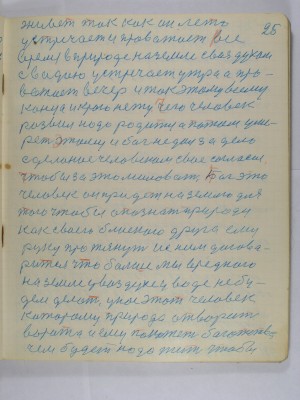 живет так как он лето 25
устречает и проважает все
время в природе на земле с воздухом
с водою устречает утра а про-
важает вечер и так этому всему
конца и краю нету Чего человек
развил надо родится а потом уме-
рет. этому и бог не дал за дело
сделаное человеком свое согласие
чтобы за это миловать Бог это
человек он придет на землю для
того чтобы опознать природу
как своего близкого друга ему
руку протянут и с ним догова-
рится что больше мы вредного
на земле у воздухе у воде не бу-
дем делать, у нас этот человек
которому природа отворит
ворота и ему поможет богатство
чем будет надо жить чтобы